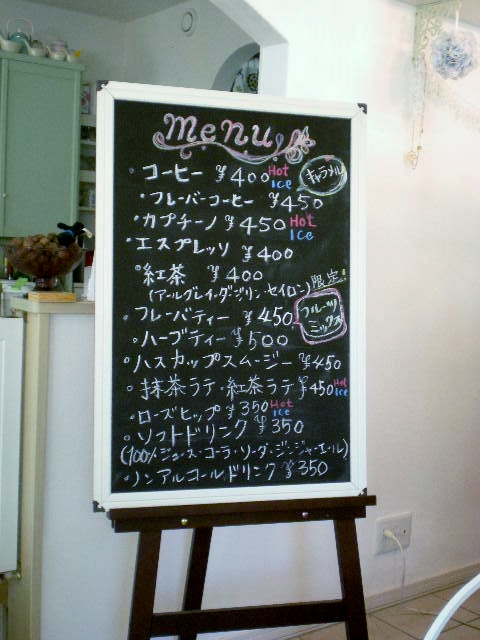 menu
・コーヒー ¥400 Hot Ice
キャラメル
・フレーバーコーヒー ¥450
・カプチーノ ¥450 Hot Ice
・エスプレッソ ¥400
・紅茶 ¥400
(アールグレイ・ダージリン・セイロン)
限定!
フルーツミックス
○フレーバティー ¥450
○ハーブティー ¥500
○ハスカップスムージー ¥450
○抹茶ラテ・紅茶ラテ ¥450 Hot Ice
・ローズヒップ ¥350 Hot Ice
○ソフトドリンク ¥350
(100%ジュース・コーラ・ソーダ・ジンジャーエール)
・ノンアルコールドリンク ¥350